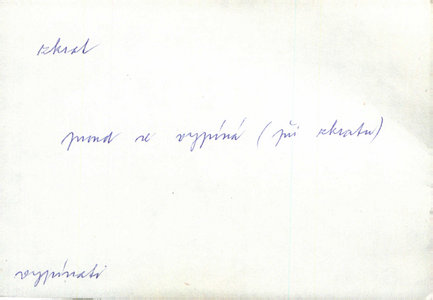 zkrat
proud se vypíná (při zkratu)
vypínati